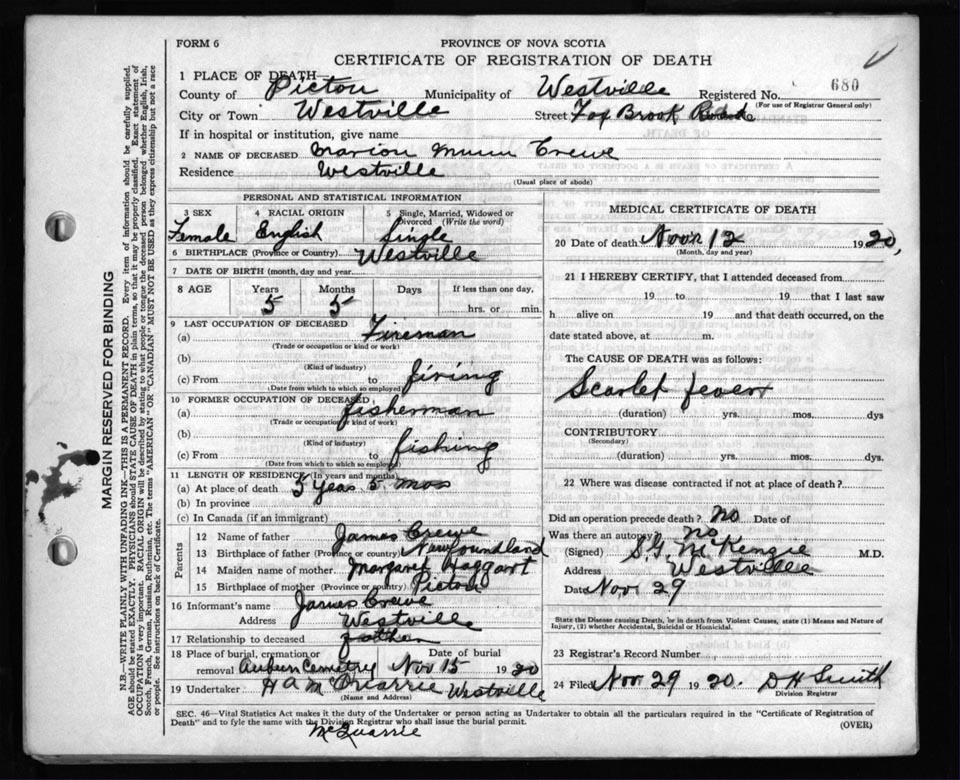 FORM 6
PROVINCE OF NOVA SCOTIA
CERTIFICATE OF REGISTRATION OF DEATH
1 PLACE OF DEATH—
680
County of Pictou Municipality of Westville Registered No.
(For use of Registrar General only)
City or Town Westville Street Fox Brook Road
If in hospital or institution, give name
2 NAME OF DECEASED Marion Munn Crewe
Residence Westville
(Usual place of abode)
PERSONAL AND STATISTICAL INFORMATION
3 SEX 4 RACIAL ORIGIN 5 Single, Married, Widowed or Divorced (Write the word)
Female English Single
6 BIRTHPLACE (Province or Country) Westville
7 DATE OF BIRTH (month, day and year)
8 AGE Years Months Days If less than one day,
5 5 hrs. or min.
9 LAST OCCUPATION OF DECEASED
(a) Fireman
(Trade or occupation or kind or work)
(b)
(Kind of industry)
(c) From to firing
(Date from which to which so employed)
10 FORMER OCCUPATION OF DECEASED
(a) fisherman
(Trade or occupation or kind of work)
(b)
(Kind of industry)
(c) From to fishing
(Date from which to which so employed)
11 LENGTH OF RESIDENCE (In years and months)
(a) At place of death 5 years 5 mos
(b) In province
(c) In Canada (if an immigrant)
Parents
12 Name of father James Crewe
13 Birthplace of father (Province or country) Newfoundland
14 Maiden name of mother Margaret Haggart
15 Birthplace of mother (Province or country) Pictou
16 Informant's name James Crewe
Address Westville
17 Relationship to deceased father
18 Place of burial, cremation or removal Date of burial
Auburn Cemetry Nov 15 1920
19 Undertaker H A McQuarrie Westville
(Name and Address)
MEDICAL CERTIFICATE OF DEATH
20 Date of death Novr 12 1920,
(Month, day and year)
21 I HEREBY CERTIFY, that I attended deceased from
19 to 19 that I last saw
h alive on 19 and that death occurred, on the
date stated above, at m.
The CAUSE OF DEATH was as follows:
Scarlet fever
(duration) yrs. mos. dys
CONTRIBUTORY
(Secondary)
(duration) yrs. mos. dys.
22 Where was disease contracted if not at place of death ?
Did an operation precede death? No Date of
Was there an autopsy? No
(Signed) McKenzie M.D.
Address Westville
Date Nov 29
State the Disease causing Death, or in death from Violent Causes, state (1) Means and Nature of
Injury, (2) whether Accidental, Suicidal or Homicidal.
23 Registrar's Record Number
24 Filed Nov 29 1920. D H Smith
Division Registrar
SEC. 46—Vital Statistics Act makes it the duty of the Undertaker or person acting as Undertaker to obtain all the particulars required in the "Certificate of Registration of
Death" and to fyle the same with the Division Registrar who shall issue the burial permit. (OVER)
McQuarrie
MARGIN RESERVED FOR BINDING
N.B.—WRITE PLAINLY WITH UNFADING INK—THIS IS A PERMANENT RECORD. Every item of information should be carefully supplied.
AGE should be stated EXACTLY. PHYSICIANS should STATE CAUSE OF DEATH in plain terms, so that it may be properly classified. Exact statement of
OCCUPATION is very important. RACIAL ORIGIN will be described by stating to what people or tongue the deceased person belonged whether English, Irish,
Scotch, French, German, Russian, Ruthenian, etc. The terms "AMERICAN" OR "CANADIAN" MUST NOT BE USED as they express citizenship but not a race
or people. See instructions on back of Certificate.